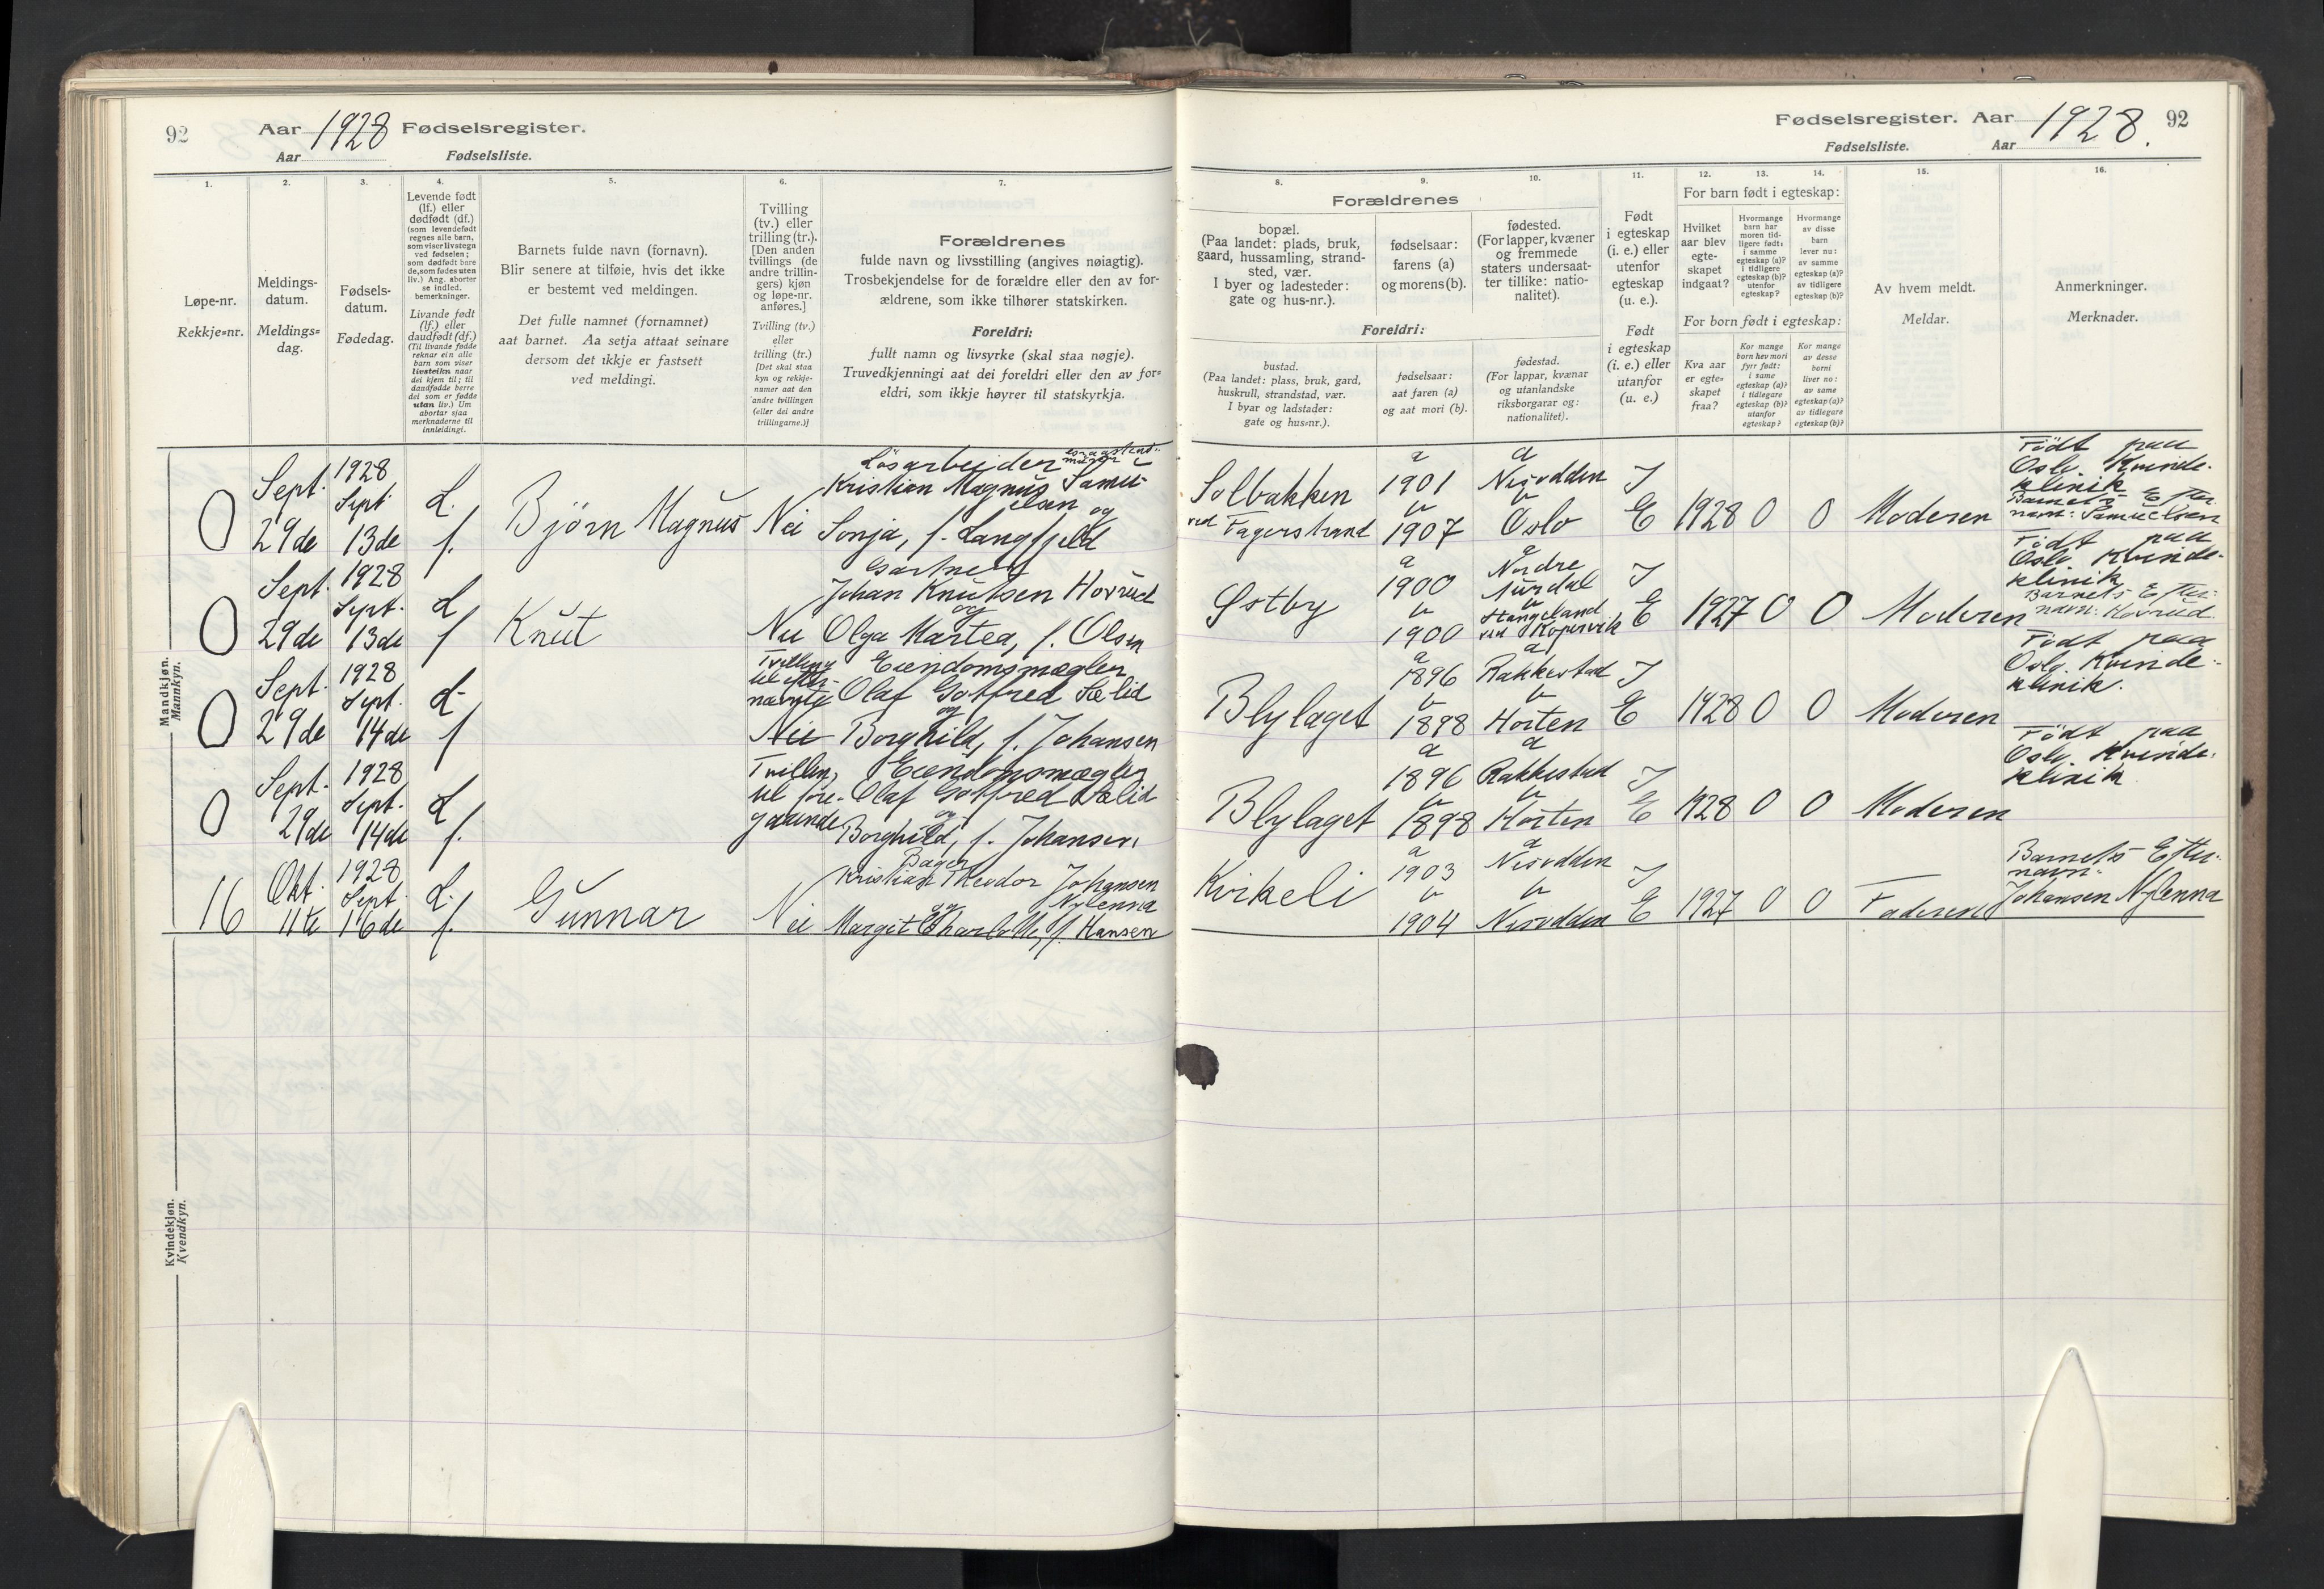 92
Aar 1928 Fødselsregister.
Aar
Fødselsliste.
1.
2.
3.
4.
5.
6.
7.
Løpe-nr.
Rekkje=nr.
Meldings-
datum.
Meldings=
dag.
Fødsels-
datum.
Fødedag.
Levende født
(lf.) eller
dødfødt (df.)
(som levendefødt
regnes alle barn,
som viser livstegn
ved fødselen;
som dødfødt bare
de, som fødes uten
liv.) Ang. aborter
se indled.
bemerkninger.
Livande født
(lf.) eller
daudfødt (df.)
(Til livande fødde
reknar ein alle
barn som viser
livsteikn naar
dei kjem til; til
daudfødde berre
dei som er fødde
utan liv.) Um
abortar sjaa
merknaderne til
innleidingi.
Barnets fulde navn (fornavn).
Blir senere at tilføie, hvis det ikke
er bestemt ved meldingen.
Det fulle namnet (fornamnet)
aat barnet. Aa setja attaat seinare
dersom det ikkje er fastsett
ved meldingi.
Tvilling
(tv.) eller
trilling (tr.).
[Den anden
tvillings (de
andre trillin-
gers) kjøn
og løpe-nr.
anføres.]
Tvilling (tv.)
eller
trilling (tr.)
[Det skal staa
kyn og rekkje-
numer aat den
andre tvillingen
(eller dei andre
trillingarne.)]
Forældrenes
fulde navn og livsstilling (angives nøiagtig).
Trosbekjendelse for de forældre eller den av for-
ældrene, som ikke tilhører statskirken.
Foreldri:
fullt namn og livsyrke (skal staa nøgje).
Truvedkjenningi aat dei foreldri eller den av for=
eldri, som ikkje høyrer til statskyrkja.
Mandkjøn.
Mannkyn.
0
Sept.
29de
1928
Sept.
13de
L.
f.
Björn Magnus
Nei
Løsarbeider
Kristian Magnus Samu-
elsen og
Sonja, f. Langfjeld
0
Sept.
29de
1928
Sept.
13de
L
f
Knut
Nei
Gartner
Johan Knutsen Hovrud
og
Olga Martea, f. Olsen
0
Sept.
29de
1928
Sept.
14de
L
f
Tvilling
til efter-
nævnte
Nei
Eiendomsmægler
Olaf Gotfred Sælid
og
Borghild, f. Johansen
0
Sept.
29de
1928
Sept.
14de
L
f.
Tvilling
til fore-
gaaende
Eiendomsmægler
Olaf Gotfred Sælid
og
Borghild, f. Johansen
16
Okt.
11te
1928
Sept.
16de
L.
f.
Gunnar
Nei
Bager
Kristian Theodor Johansen
Nylenna
og
Margit Charlotte, f. Hansen
Kvindekjøn.
Kvendkyn.
Fødselsregister. Aar 1928. 92
Fødselsliste.
Aar
8.
9.
10.
11.
12.
13.
14.
15.
16.
Forældrenes
bopæl.
(Paa landet: plads, bruk,
gaard, hussamling, strand-
sted, vær.
I byer og ladesteder:
gate og hus-nr.).
fødselsaar:
farens (a)
og morens (b).
fødested.
(For lapper, kvæner
og fremmede
staters undersaat-
ter tillike: natio-
nalitet).
Foreldri:
bustad.
(Paa landet: plass, bruk, gard,
huskrull, strandstad, vær.
I byar og ladstader:
gate og hus=nr.).
fødselsaar:
aat faren (a)
og aat mori (b).
fødestad.
(For lappar, kvænar
og utanlandske
riksborgarar og:
nationalitet).
Født
i egteskap
(i. e.) eller
utenfor
egteskap
(u. e.).
Født
i egteskap
(i. e.) eller
utanfor
(u. e.)
For barn født i egteskap:
Hvilket
aar blev
egte-
skapet
indgaat?
Hvormange
barn har
moren tid-
ligere født:
i samme
egteskap (a)?
i tidligere
egteskap (b)?
utenfor
egteskap?
Hvormange
av disse
barn
lever nu:
av samme
egteskap (a)?
av tidligere
egteskap (b)?
For born født i egteskap:
Kva aar
er egte=
skapet
fraa?
Kor mange
born hev mori
fyrr født:
i same
egteskap (a)?
i tidlegare
egteskap (b)?
utanfor
egteskap?
Kor mange
av desse
borni
liver no:
av same
egteskap (a)?
av tidlegare
egteskap (b)?
Av hvem meldt.
Meldar.
Anmerkninger.
Merknader.
Solbakken
ved Fagerstrand
a
1901
b
1907
a
Nesodden
b
Oslo
I
E
1928
0
0
Moderen
Födt paa
Oslo Kvinde-
klinik
Barnets Efter-
navn: Samuelsen
Østby
a
1900
b
1900
a
Nordre
Aurdal
b
Stangeland
ved Kopervik
I
E
1927
0
0
Moderen
Födt paa
Oslo Kvinde-
klinik
Barnets Efter-
navn: Hovrud
Blylaget
a
1896
b
1898
a
Rakkestad
b
Horten
I
E
1928
0
0
Moderen
Födt paa
Oslo Kvinde-
klinik.
Blylaget
a
1896
b
1898
a
Rakkestad
b
Horten
I
E
1928
0
0
Moderen
Födt paa
Oslo Kvinde-
klinik
Kirkeli
a
1903
b
1904
a
Nesodden
b
Nesodden
I
E
1927
0
0
Faderen
Barnets Efter-
navn:
Johansen Nylenna